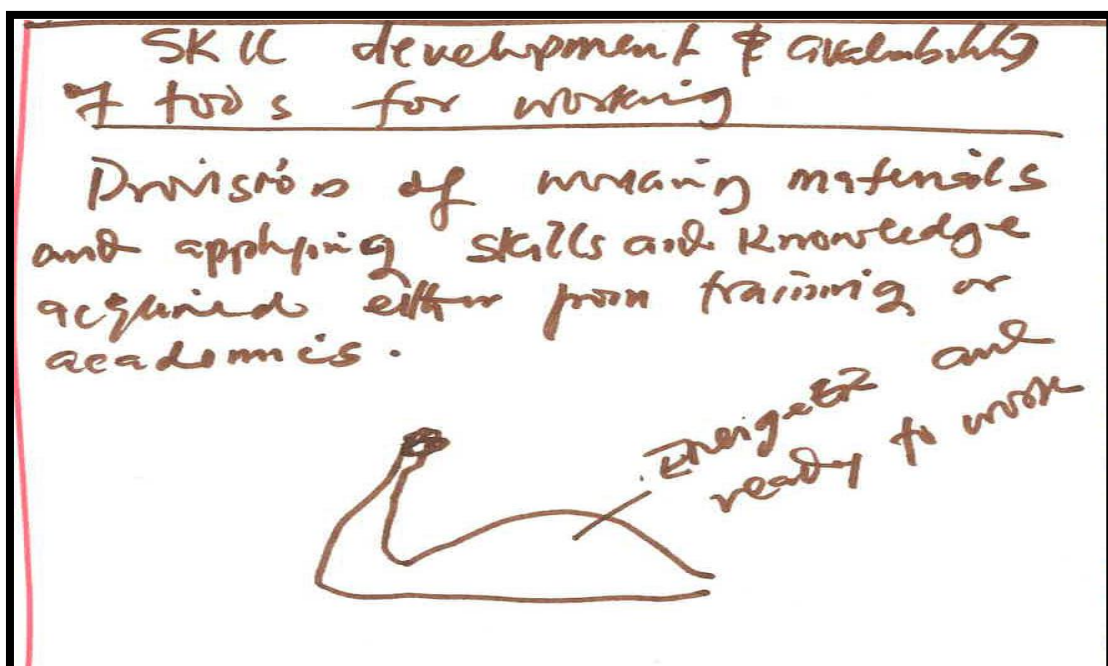 Skill development & availability
of tools for working
Provision of working materials
and applying skills and knowledge
acquired either from training or
academics.
Energetic and
ready to work